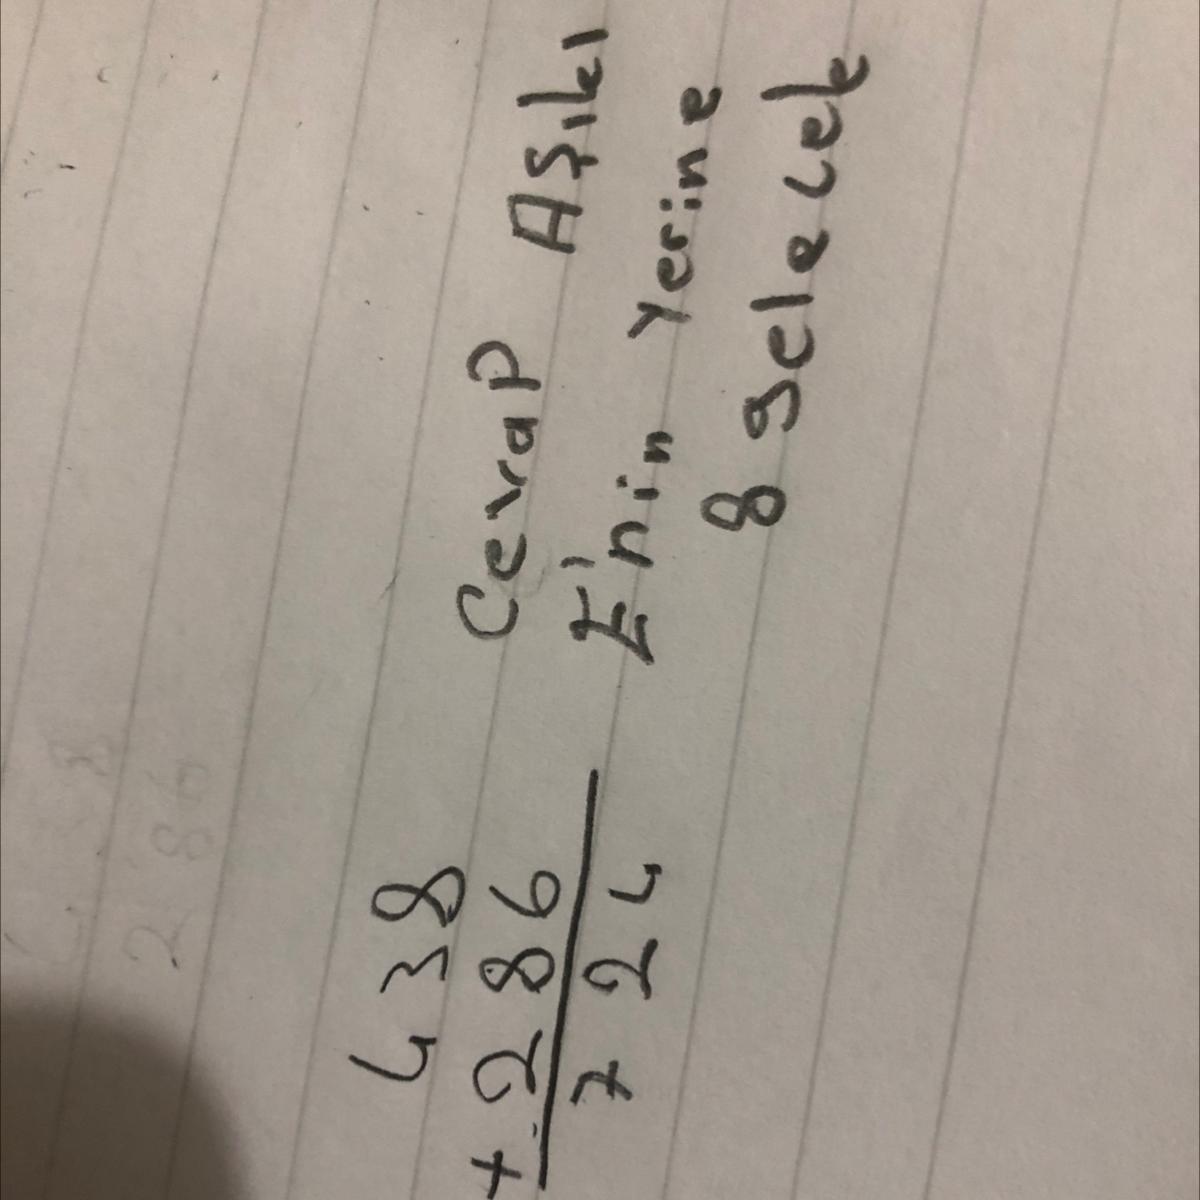 438
+ 286
724
Cevap Aşıkı
E'nin yerine
8 gelecek
2 86